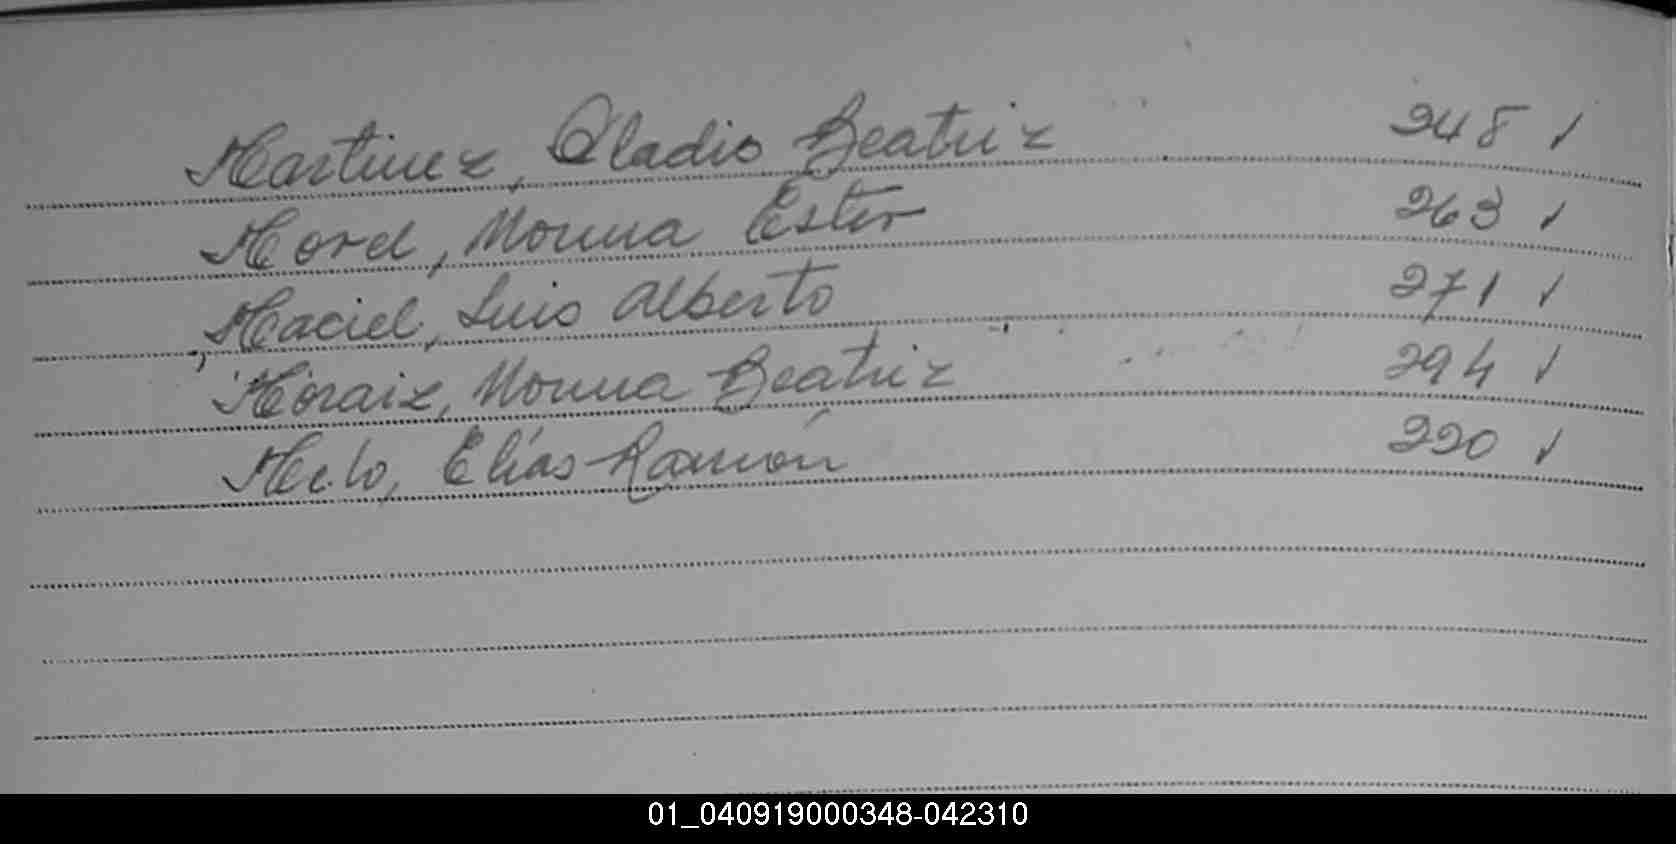 Martinez, Eladio Beatriz 248 ✓
Morel, Norma Ester 263 ✓
Maciel, Luis Alberto 271 ✓
Moraiz, Norma Beatriz 294 ✓
Melo, Elías Ramón 220 ✓
01_040919000348-042310